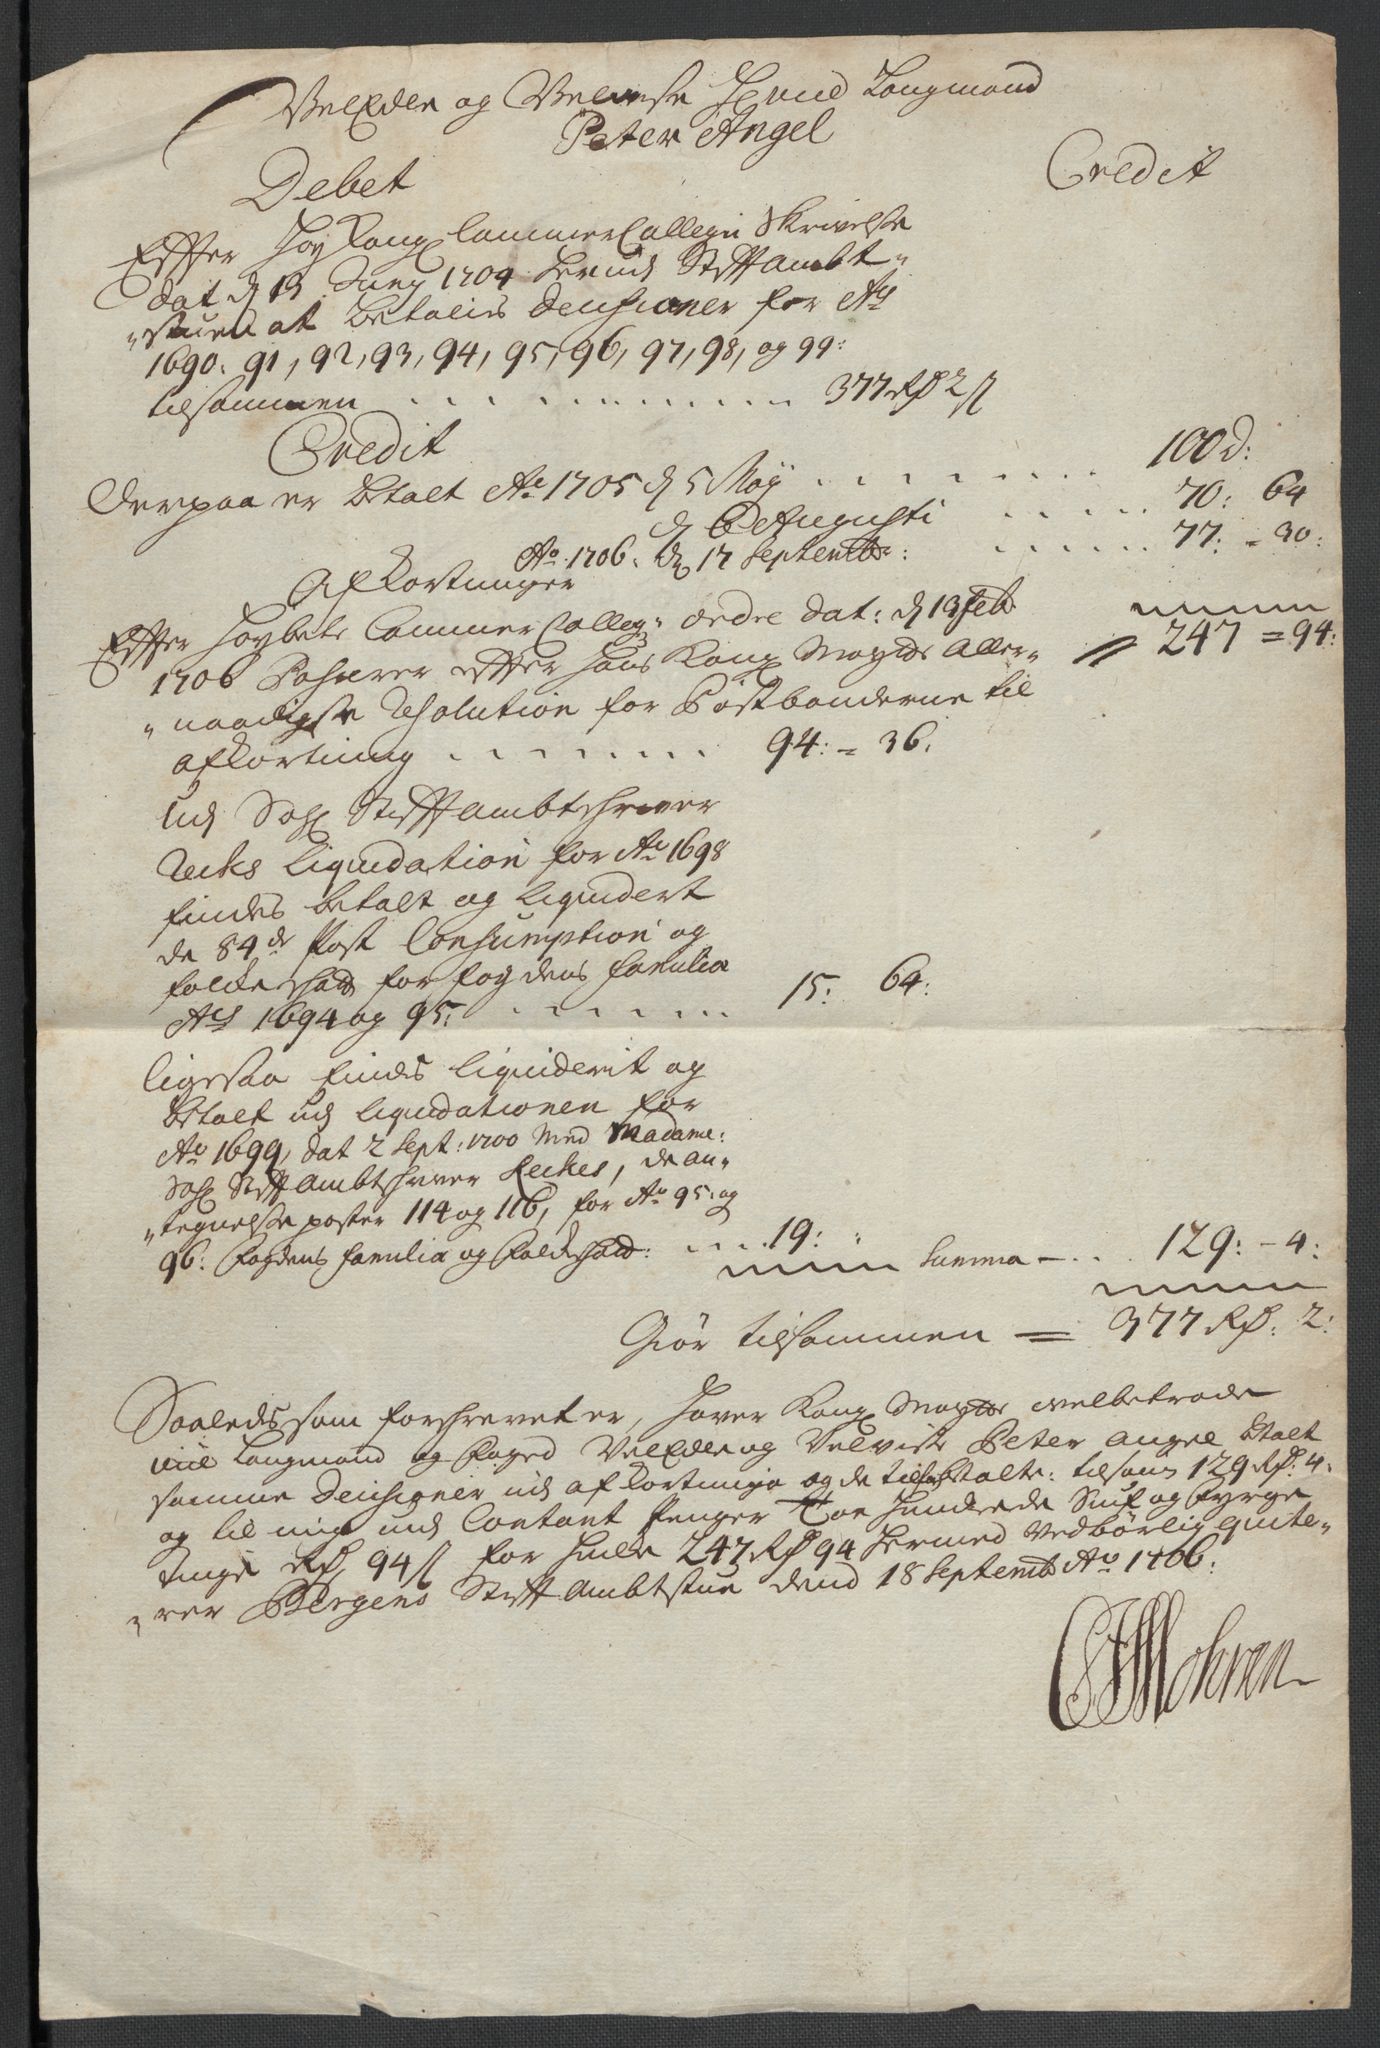 VelEdle og Velviise Herre Laugmand
Peter Angel
Debet
Credit
Effter Høy Kong Cammer Collegii Skrivelse
dat d 13 Juny 1704 herud Stiftambt-
stuen at betalis Decisioner for Ao
1690. 91, 92, 93, 94, 95, 96, 97, 98, og 99:
tilsammen . . . 377 Rd 2 s
Credit
Derpaa er betalt Ao 1705 d 5 Maij . . . 100 d:
d 6 Augusti . . . 70: 64
Ao 1706. d 17 Septembr: . . . 77: - 30:
Afkortninger
247 = 94:
Effter Høybete Cammer Colleg: ordre dat: d 13 Febr
1706 Passerer effter Hans Kong Mayts Aller-
naadigste Resolution for Postbønderne til
afkortning . . . 94: - 36:
Ud Sahl Stiftambtschriver
Recks Liquidation for Ao 1698
findes betalt og liquidert
de 84de Post Consumption og
folckeschatt for fogdens familia
Ao 1694 og 95: . . . 15: 64:
Ligesaa findes liquiderit og
betalt ud liquidationen for
Ao 1699, dat 2 Sept: 1700 med Madame:
Sahl Stiftambtschriver Reckes, de an-
tegnelse poster 114 og 116, for Ao 95: og
96: Fogdens familia og Folckeschatt: . . . 19: "
Summa - . . 129: - 4:
Giør tilsammen = 377 Rd: 2:
Saaledis som forschrevet er, haver Kong Mayts velbetrode
Laugmand og Foged VelEdle og Velviise Peter Angel betalt
samme Decisioner ud afkortninger og de tilforbetalte: tilsam 129 Rd: 4:
og til mig udi Contant Penger Toe Hundrede Siuf og Fyrge
tiuge Rd, 94 s for hvilke 247 Rd 94 hermed Vedbørlig quite-
rer Bergens Stiftambtstue dend 18 Septembr Ao 1706:
Mohren